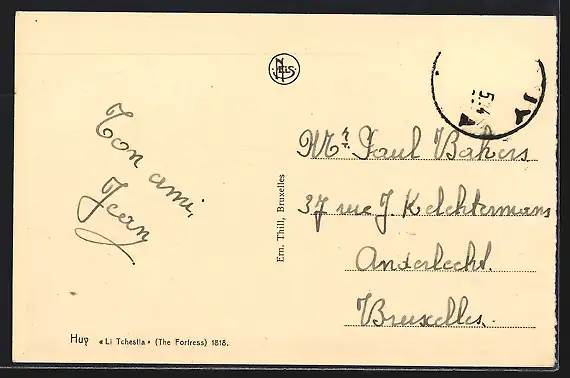 NELS
Ton ami,
Jean
Mr. Paul Bakers
37 rue J Kelchtermans
Anderlecht.
Bruxelles.
Ern. Thill, Bruxelles
Huy «Li Tchestia» (The Fortress) 1818.